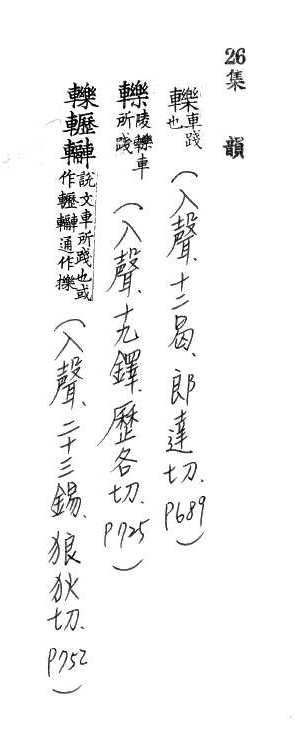 26集韻
轢車踐也(入聲、十二曷、郎達切、P689)
轢陵轢車所踐(入聲、十九鐸、歷各切、P725)
轢轣說文車所踐也或作轣通作擽(入聲、二十三錫、狼狄切、P752)